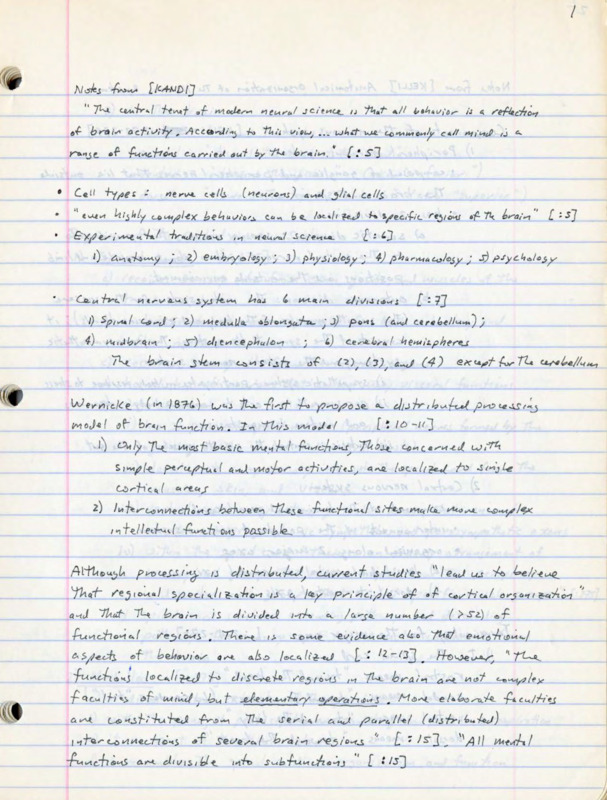 1
Notes from [KAND1]
"The central tenet of modern neural science is that all behavior is a reflection
of brain activity. According to this view, ... what we commonly call mind is a
range of functions carried out by the brain." [:5]
• Cell types: nerve cells (neurons) and glial cells
• "even highly complex behaviors can be localized to specific regions of the brain" [:5]
• Experimental traditions in neural science [:6]
1) anatomy; 2) embryology; 3) physiology; 4) pharmacology; 5) psychology
• Central nervous system has 6 main divisions [:7]
1) Spinal cord; 2) medulla oblongata; 3) pons (and cerebellum);
4) midbrain; 5) diencephalon; 6) cerebral hemispheres
The brain stem consists of (2), (3), and (4) except for the cerebellum
Wernicke (in 1876) was the first to propose a distributed processing
model of brain function. In this model [:10-11]
1) Only the most basic mental functions, those concerned with
simple perceptual and motor activities, are localized to single
cortical areas
2) Interconnections between these functional sites make more complex
intellectual functions possible.
Although processing is distributed, current studies "lead us to believe
that regional specialization is a key principle of of cortical organization"
and that the brain is divided into a large number (>52) of
functional regions. There is some evidence also that emotional
aspects of behavior are also localized [:12-13]. However, "the
functions localized to discrete regions in the brain are not complex
faculties of mind, but elementary operations. More elaborate faculties
are constituted from the serial and parallel (distributed)
interconnections of several brain regions." [:15]. "All mental
functions are divisible into subfunctions" [:15]